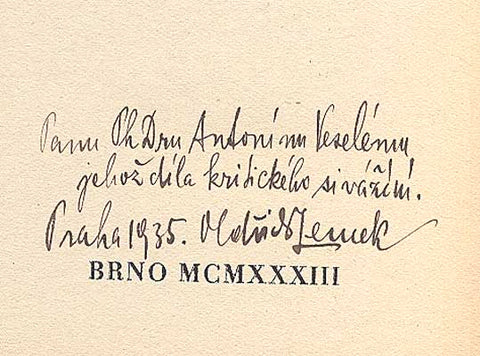 Panu PhDru Antonínu Veselému
jehož díla kritického si vážím.
Praha 1935. Oldřich Zemek
BRNO MCMXXXIII